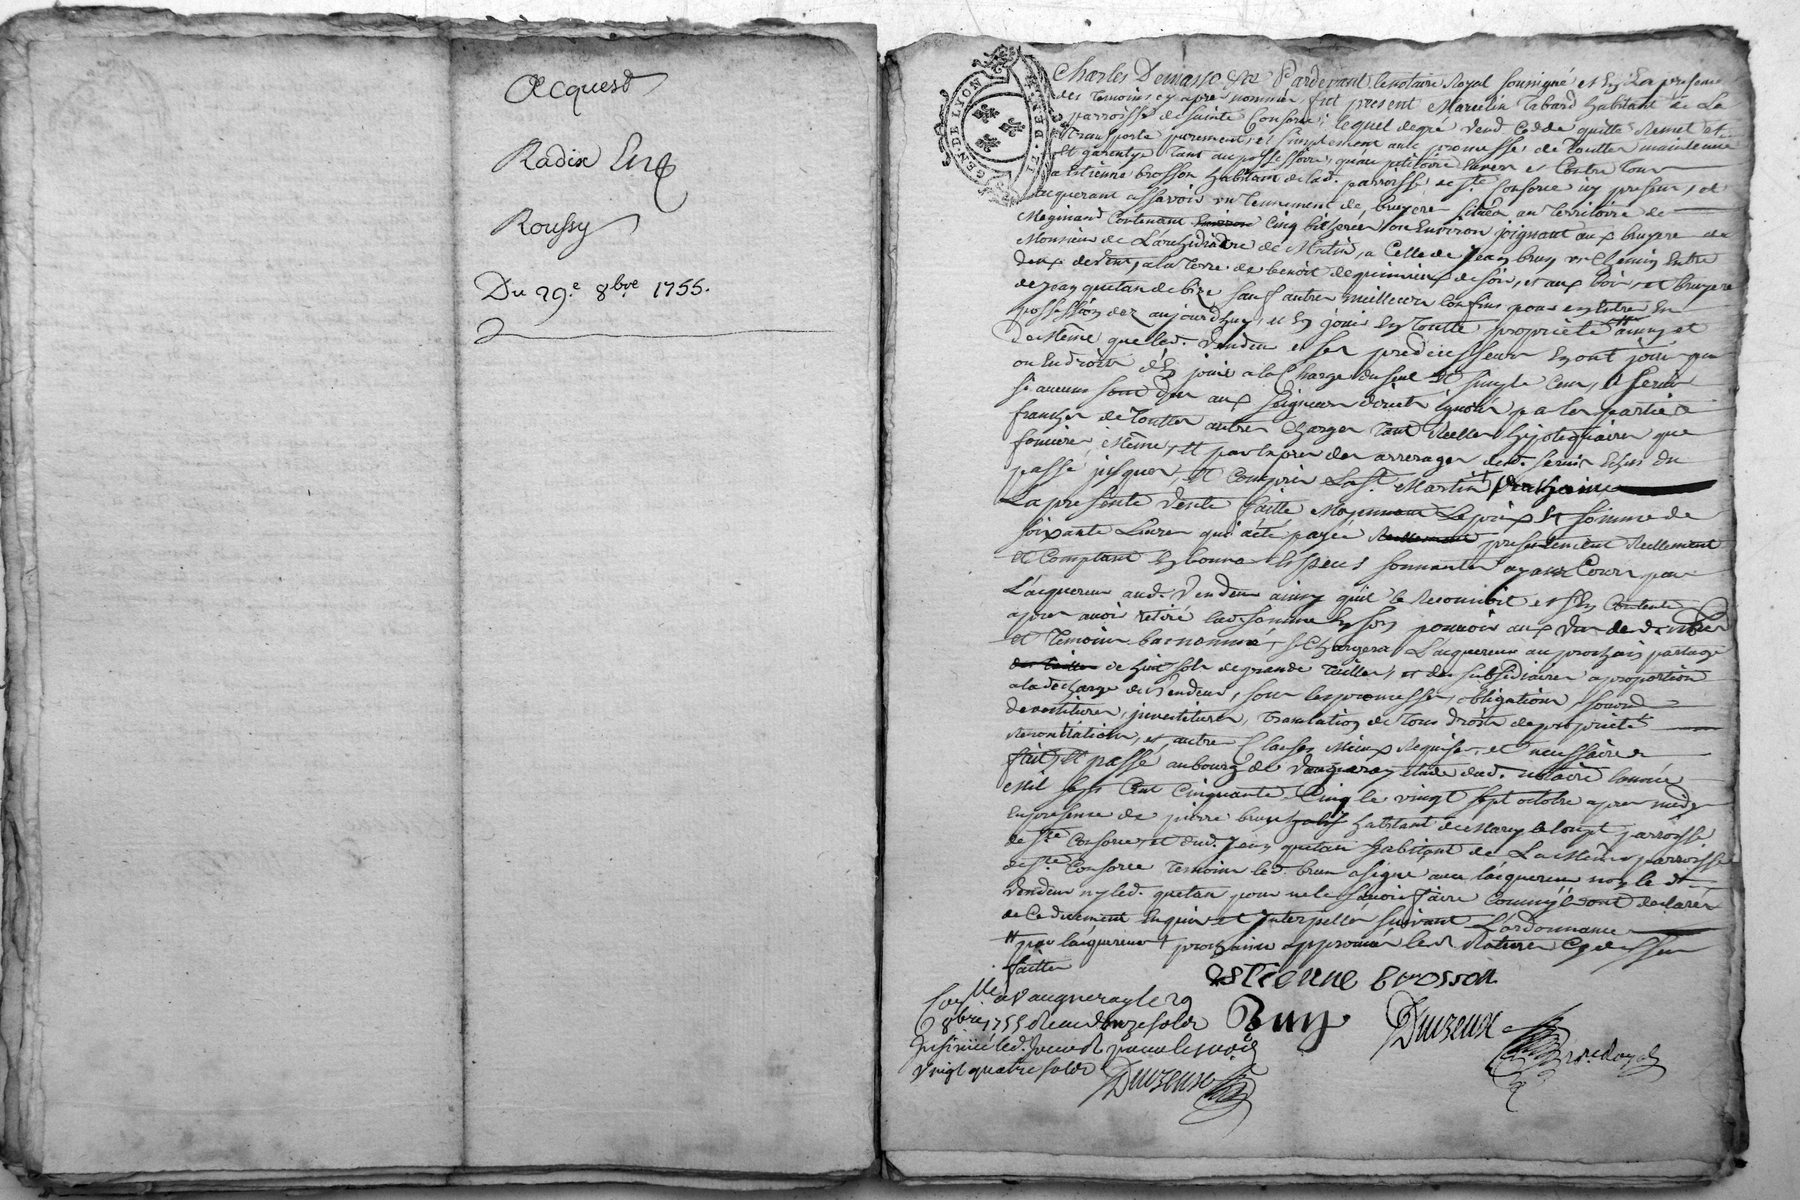 Acquest
Radix
Roussy
Du 29.e 8bre 1755.
GEN. DE LYON
Pardevant le notaire Royal soussigné et En La presence
des temoins cy apres nommés fut present Marcelin Tabard habitant de La
parroisse de Sainte Consorce, lequel de gré vend Cedde quitte Remet et
transporte purement et simplement avec promesse de toutte maintenue
Et garentye tant au possessoire, quau petitoire Envers et Contre tous
a Estienne brosson habitant de lad. parroisse de Ste Consorce icy present, et
acquerant assavoir un tennement de bruyere situéa au territoire de
Meginand Contenant Cinq bicherées ou Environ joignant aux bruyere de
a Celle de Jean bruy un Chemin Entre
deux de vent, a la terre de benoit de soir, et aux bois et bruyere
de Jean quetan de bize sauf autres meilleurs Confins pour en Estre En
possession dez aujourdhuy, et En jouir En toutte proprieté ainsy et
De Même que led. Vendeur et ses predecesseurs En ont joüi ou
ou En droit d'En jouir a la Charge du seul Et simple Cens, et Servis
si aucuns sont dus aux Seigneurs directs ignorés par les parties
franches de touttes autres Charges tant Reelles hipotequaires que
foncieres Même, Et par Exprès des arrerages dud. servis Echus du
passé jusques, Et Compris La St. Martin prochaine
La presente Vente faitte Moyennant Le prix Et somme de
soixante Livres qui a été payée presentement Reellement
et Comptant En bonnes Especes sonnantes ayans Cours par
L'acquereur aud. Vendeur ainsy qu'il le Reconnoit et s'En Contente
apres avoir retiré lad. somme En son pouvoir aux vus
Et temoins bas nommés, se Chargera L'acquereur au prochain partage
de huit sols de grande tailles, et des subsidiaires a proportion
a la décharge du Vendeur, sous les promesses, obligations
devestitures, investitures, translation de tous droits de proprieté
et autres Clauses Mieux Requises, et necessaires
fait, Et passé au bourg de Vaugneray étude dud. notaire l'année
Mil sept Cent Cinquante Cinq le vingt sept octobre apres midy
En presence de pierre habitant de parroisse
de Ste Consorce, et dud. Jean quetan habitant de La parroisse
de Ste Consorce temoins led. a signé avec l'acquereur non le
Vendeur ny led. quetan pour ne le scavoir faire Comme ils ont declaré
de Ce düement Enquis et Interpellés suivant L'ordonnance
par l'acquereur prochaine approuvés les Ratures Cy dessus
faittes
estienne brosson
Duzeux
a Vaugneray le 29
8bre 1755 Receu douze sols
vingt quatre sols
Duzeux